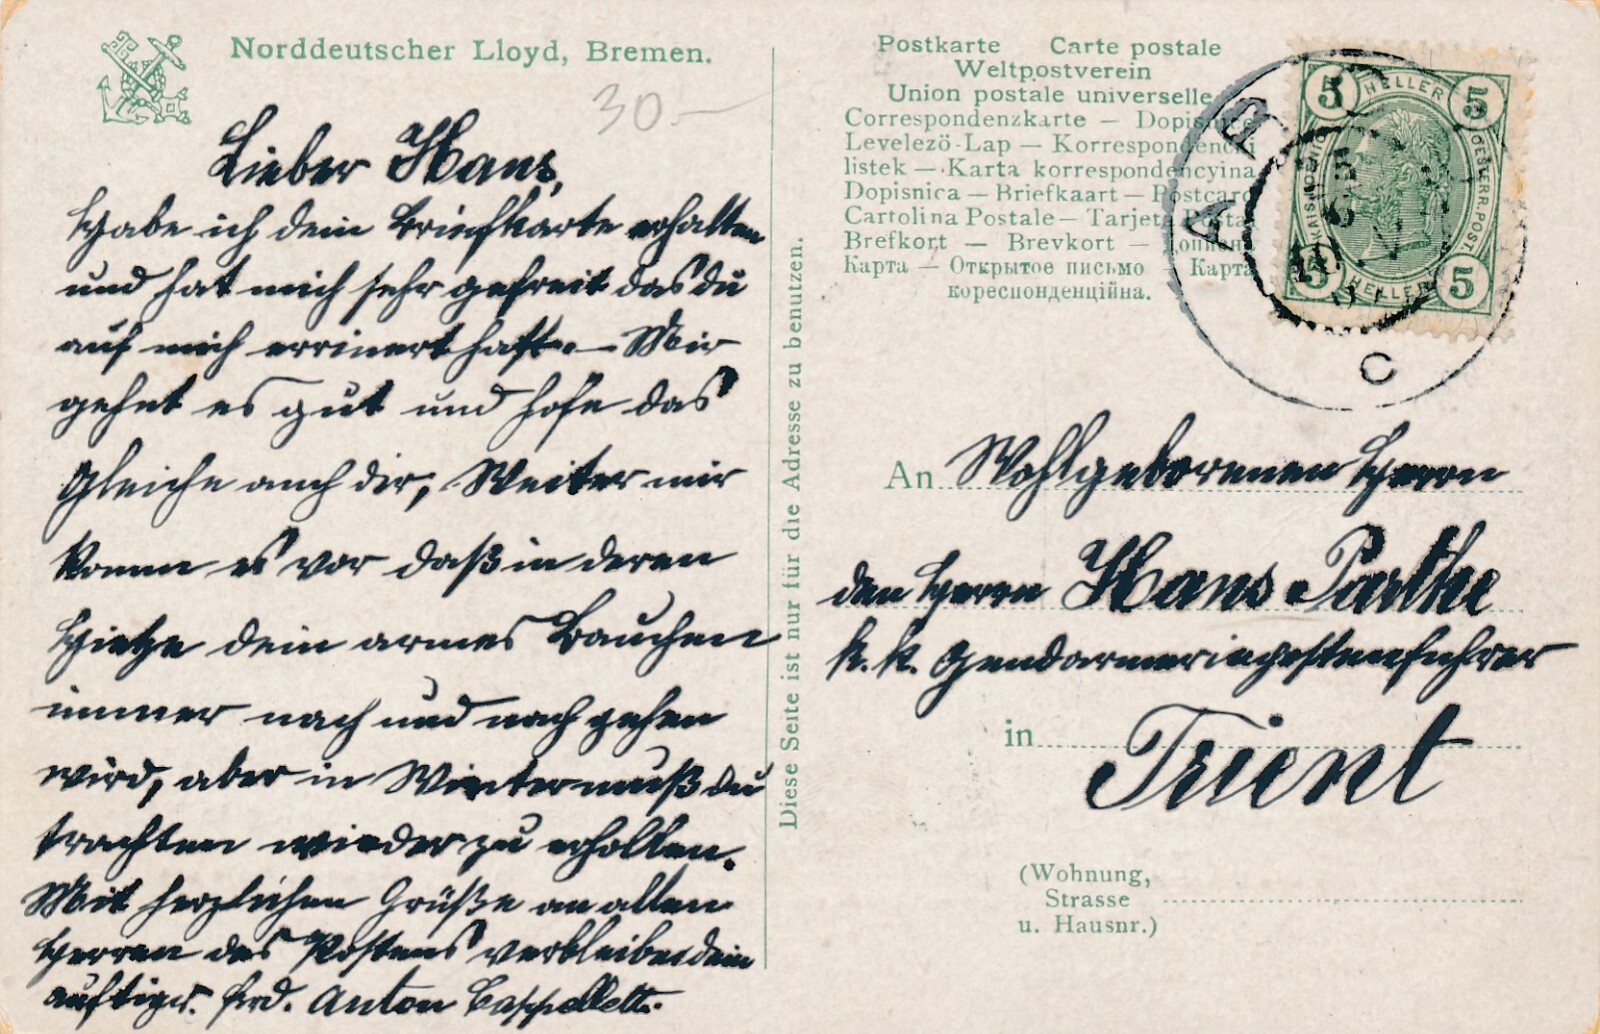 Norddeutscher Lloyd, Bremen.
30.–
Lieber Hans,
Habe ich dein Briefkarte erhalten
und hat mich sehr gefreit das du
auf mich errinert hast. – Mir
gehet es gut und hofe das
Gleiche auch dir, Weiter mir
komm es vor daß in deren
Hietze dein armes Bauchen
immer nach und nach gehen
wird, aber in Winter muß du
trachten wieder zu erhollen.
Mit herzlichen Grüße an allen
Herren des Postens verbleibe dein
auftiger. Frd. Anton
Diese Seite ist nur für die Adresse zu benutzen.
Postkarte Carte postale
Weltpostverein
Union postale universelle
Correspondenzkarte — Dopisnice
Levelező-Lap — Korrespondencki
listek — Karta korrespondencyina
Dopisnica — Briefkaart — Postcard
Cartolina Postale — Tarjeta Postal
Brefkort — Brevkort —
Карта — Открытое письмо — Карта
кореспонденційна.
5 HELLER 5
KAISERL. KÖNIGL. OESTERR. POST.
5 HELLER 5
C
An Wohlgeborenen Herrn
den Herrn Hans Parthe
k. k. Gendarmerie
in Trient
(Wohnung,
Strasse
u. Hausnr.)